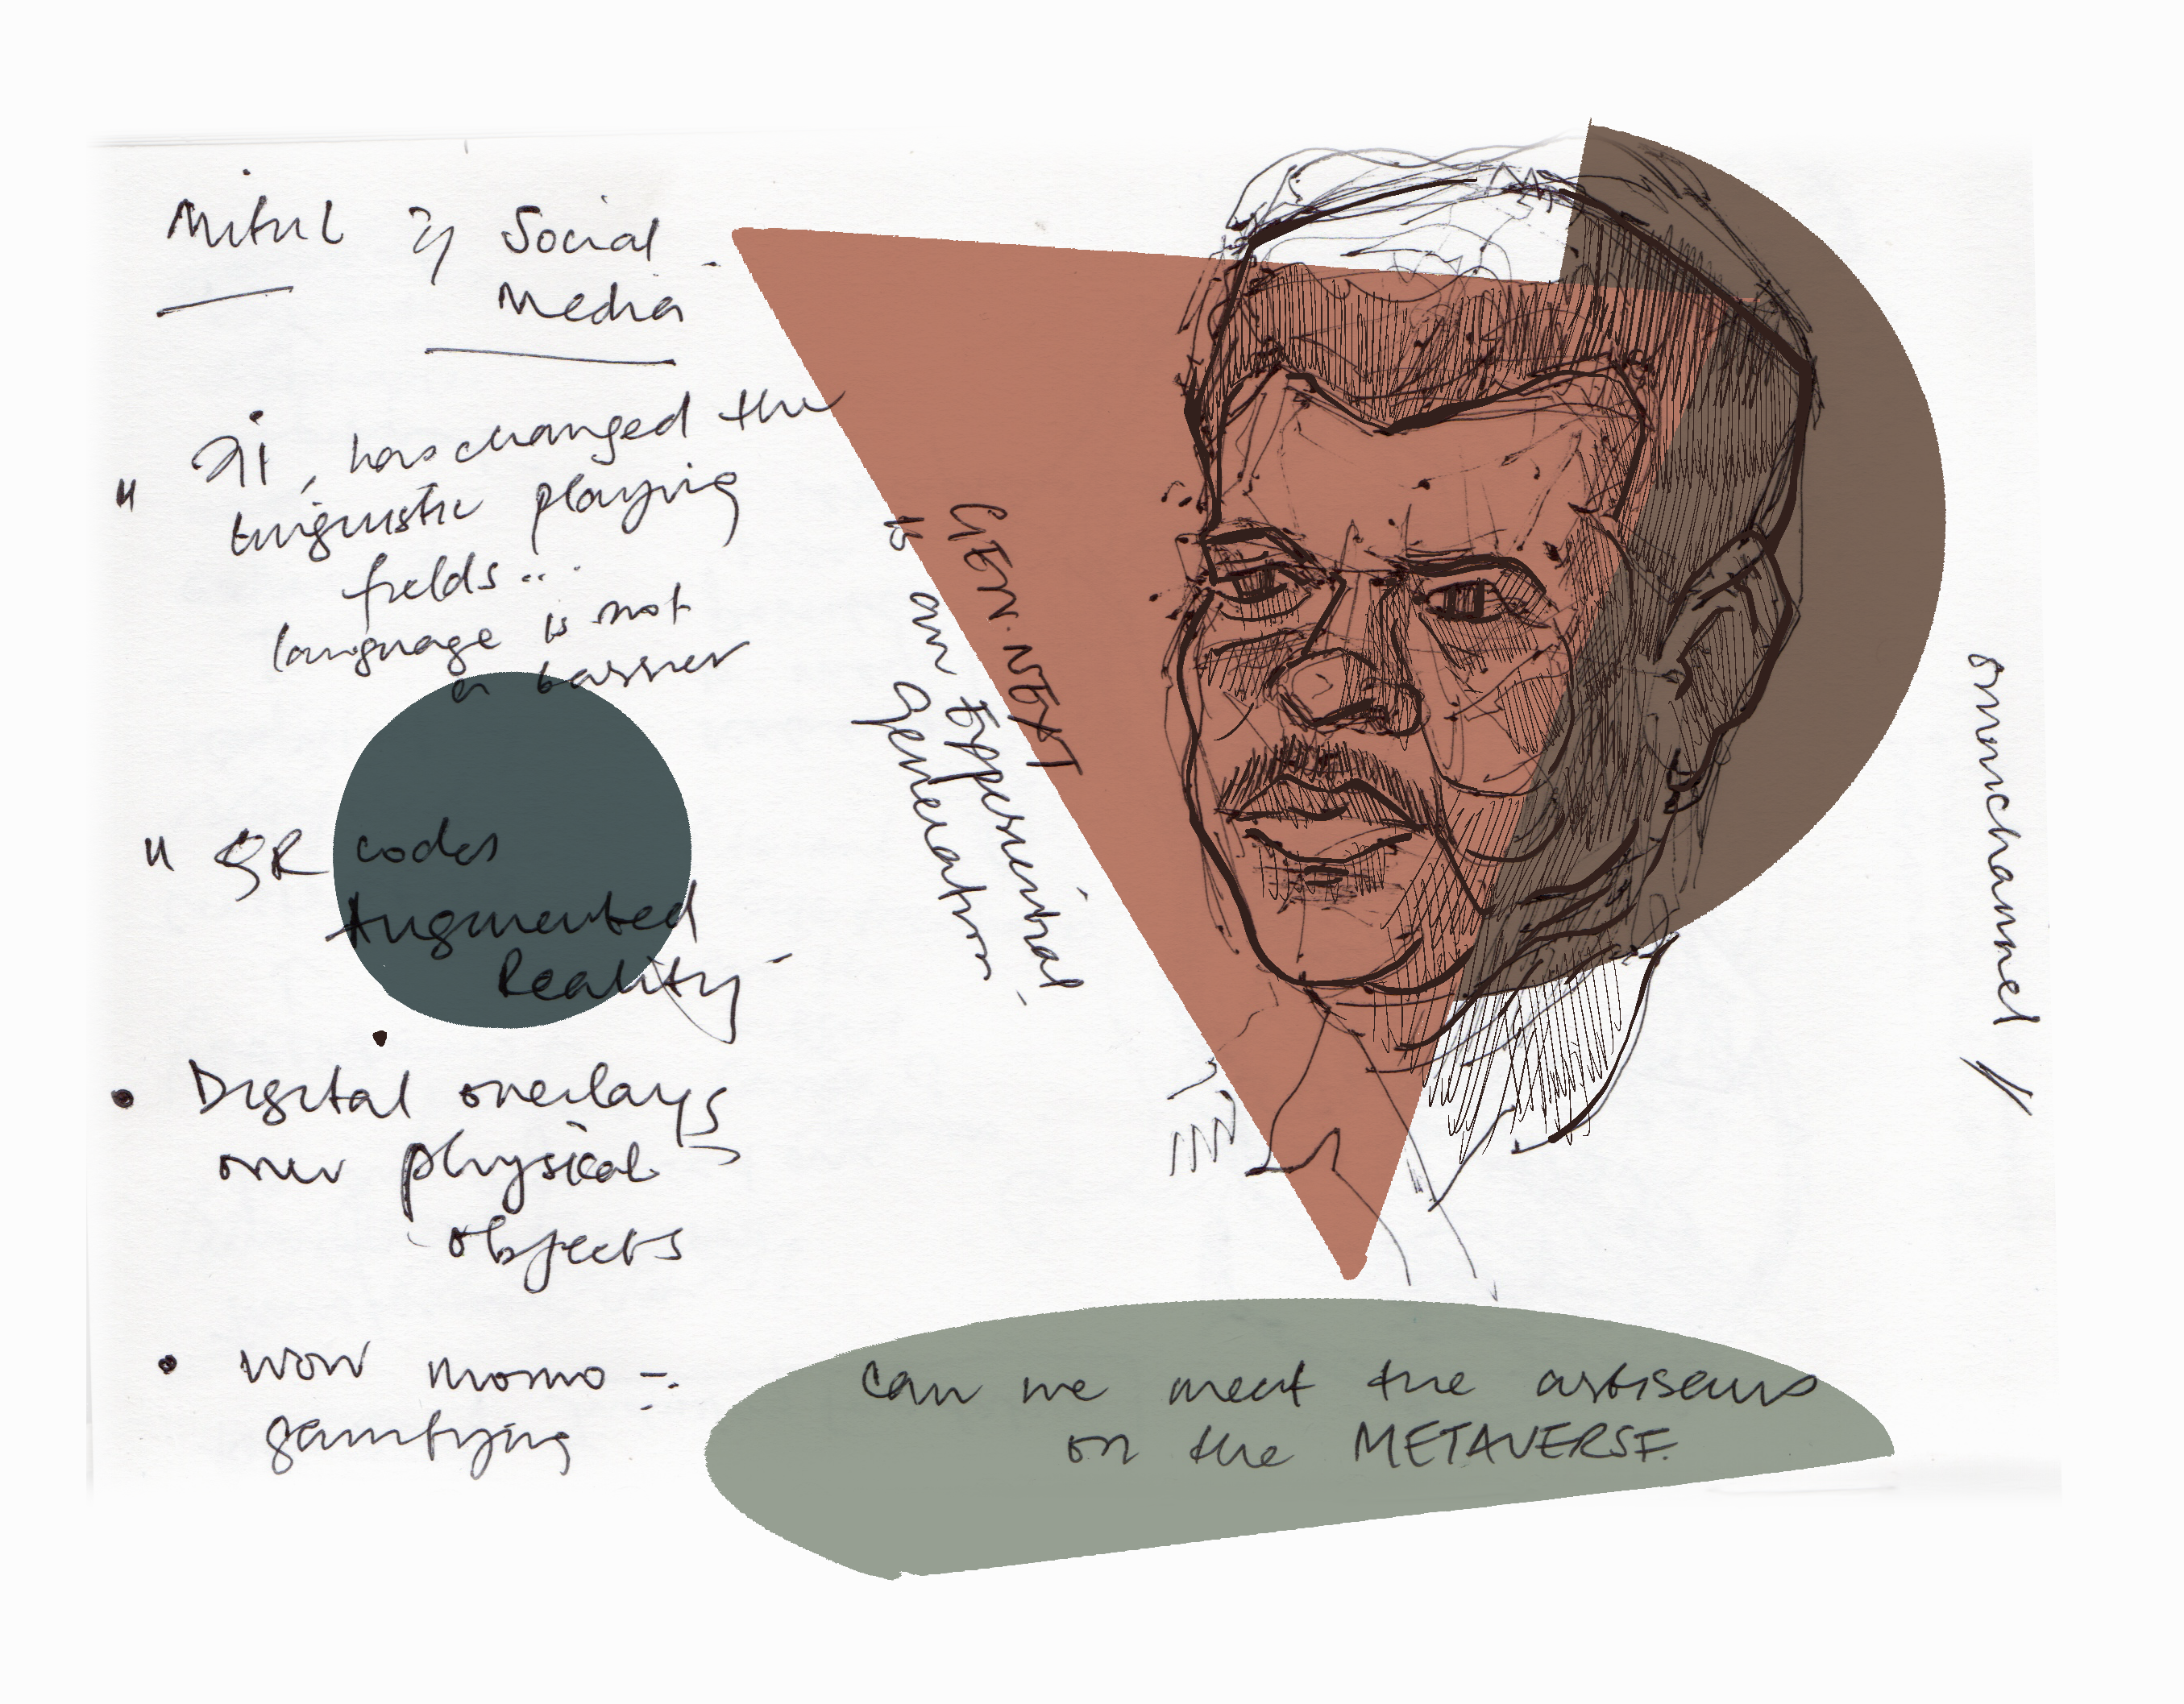 Mitul Social
Media
" AI, has changed the
linguistic playing
fields...
language is not
a barrier
" QR codes
Augmented
Reality -
• Digital overlays
over physical
objects
• wow momo -
gamifying
GEN. NEXT
is an Experiential
Generation
omnichannel //
Can we meet the artisans
on the METAVERSE.